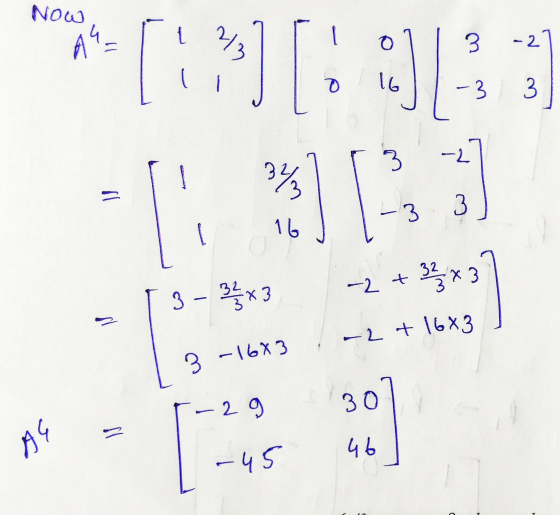 Now
A⁴ = [ 1 2/3 ; 1 1 ] [ 1 0 ; 0 16 ] [ 3 -2 ; -3 3 ]
= [ 1 32/3 ; 1 16 ] [ 3 -2 ; -3 3 ]
= [ 3 - 32/3 × 3 -2 + 32/3 × 3 ; 3 - 16×3 -2 + 16×3 ]
A⁴ = [ -29 30 ; -45 46 ]